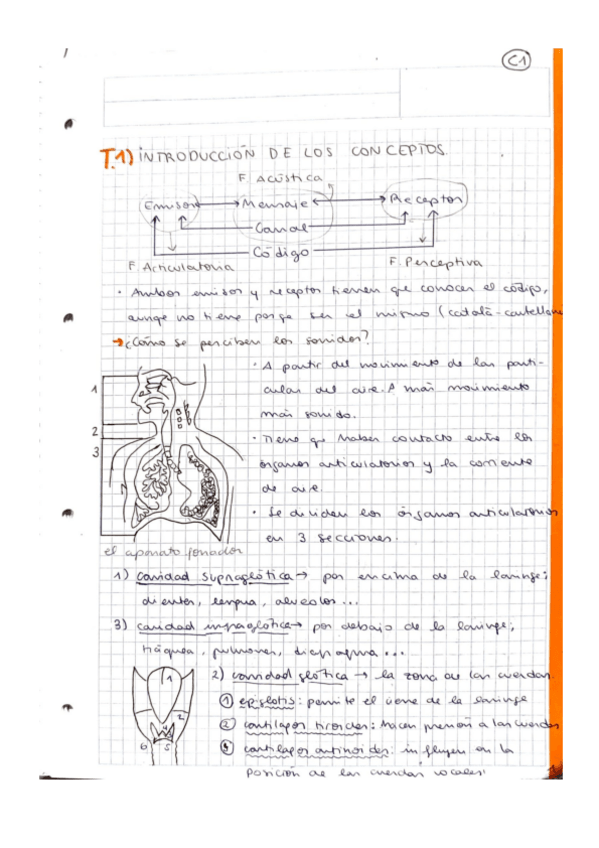 C1
T.1) INTRODUCCIÓN DE LOS CONCEPTOS.
F. Acústica
Emisor Mensaje Receptor
Canal
Código
F. Articulatoria F. Perceptiva
· Ambos emisor y receptor tienen que conocer el código,
aunqe no tiene porqe ser el mismo (català-castellano
→ ¿Cómo se perciben los sonidos?
· A partir del movimiento de las partí-
culas del aire. A más movimiento
más sonido.
· Tiene que haber contacto entre los
órganos articulatorios y la corriente
de aire.
· Se dividen los órganos articulatorios
en 3 secciones.
1
2
3
el aparato fonador
1) cavidad supraglótica → por encima de la laringe;
dientes, lengua, alveolos...
3) cavidad infraglótica → por debajo de la laringe;
tráquea, pulmones, diafragma...
2) cavidad glótica → la zona de las cuerdas.
1 epiglotis: permite el cierre de la laringe
2 cartílagos tiroides: hacen presión a las cuerdas
4 cartílagos aritnoides: influyen en la
posición de las cuerdas vocales.
1
2
4
6
5
1